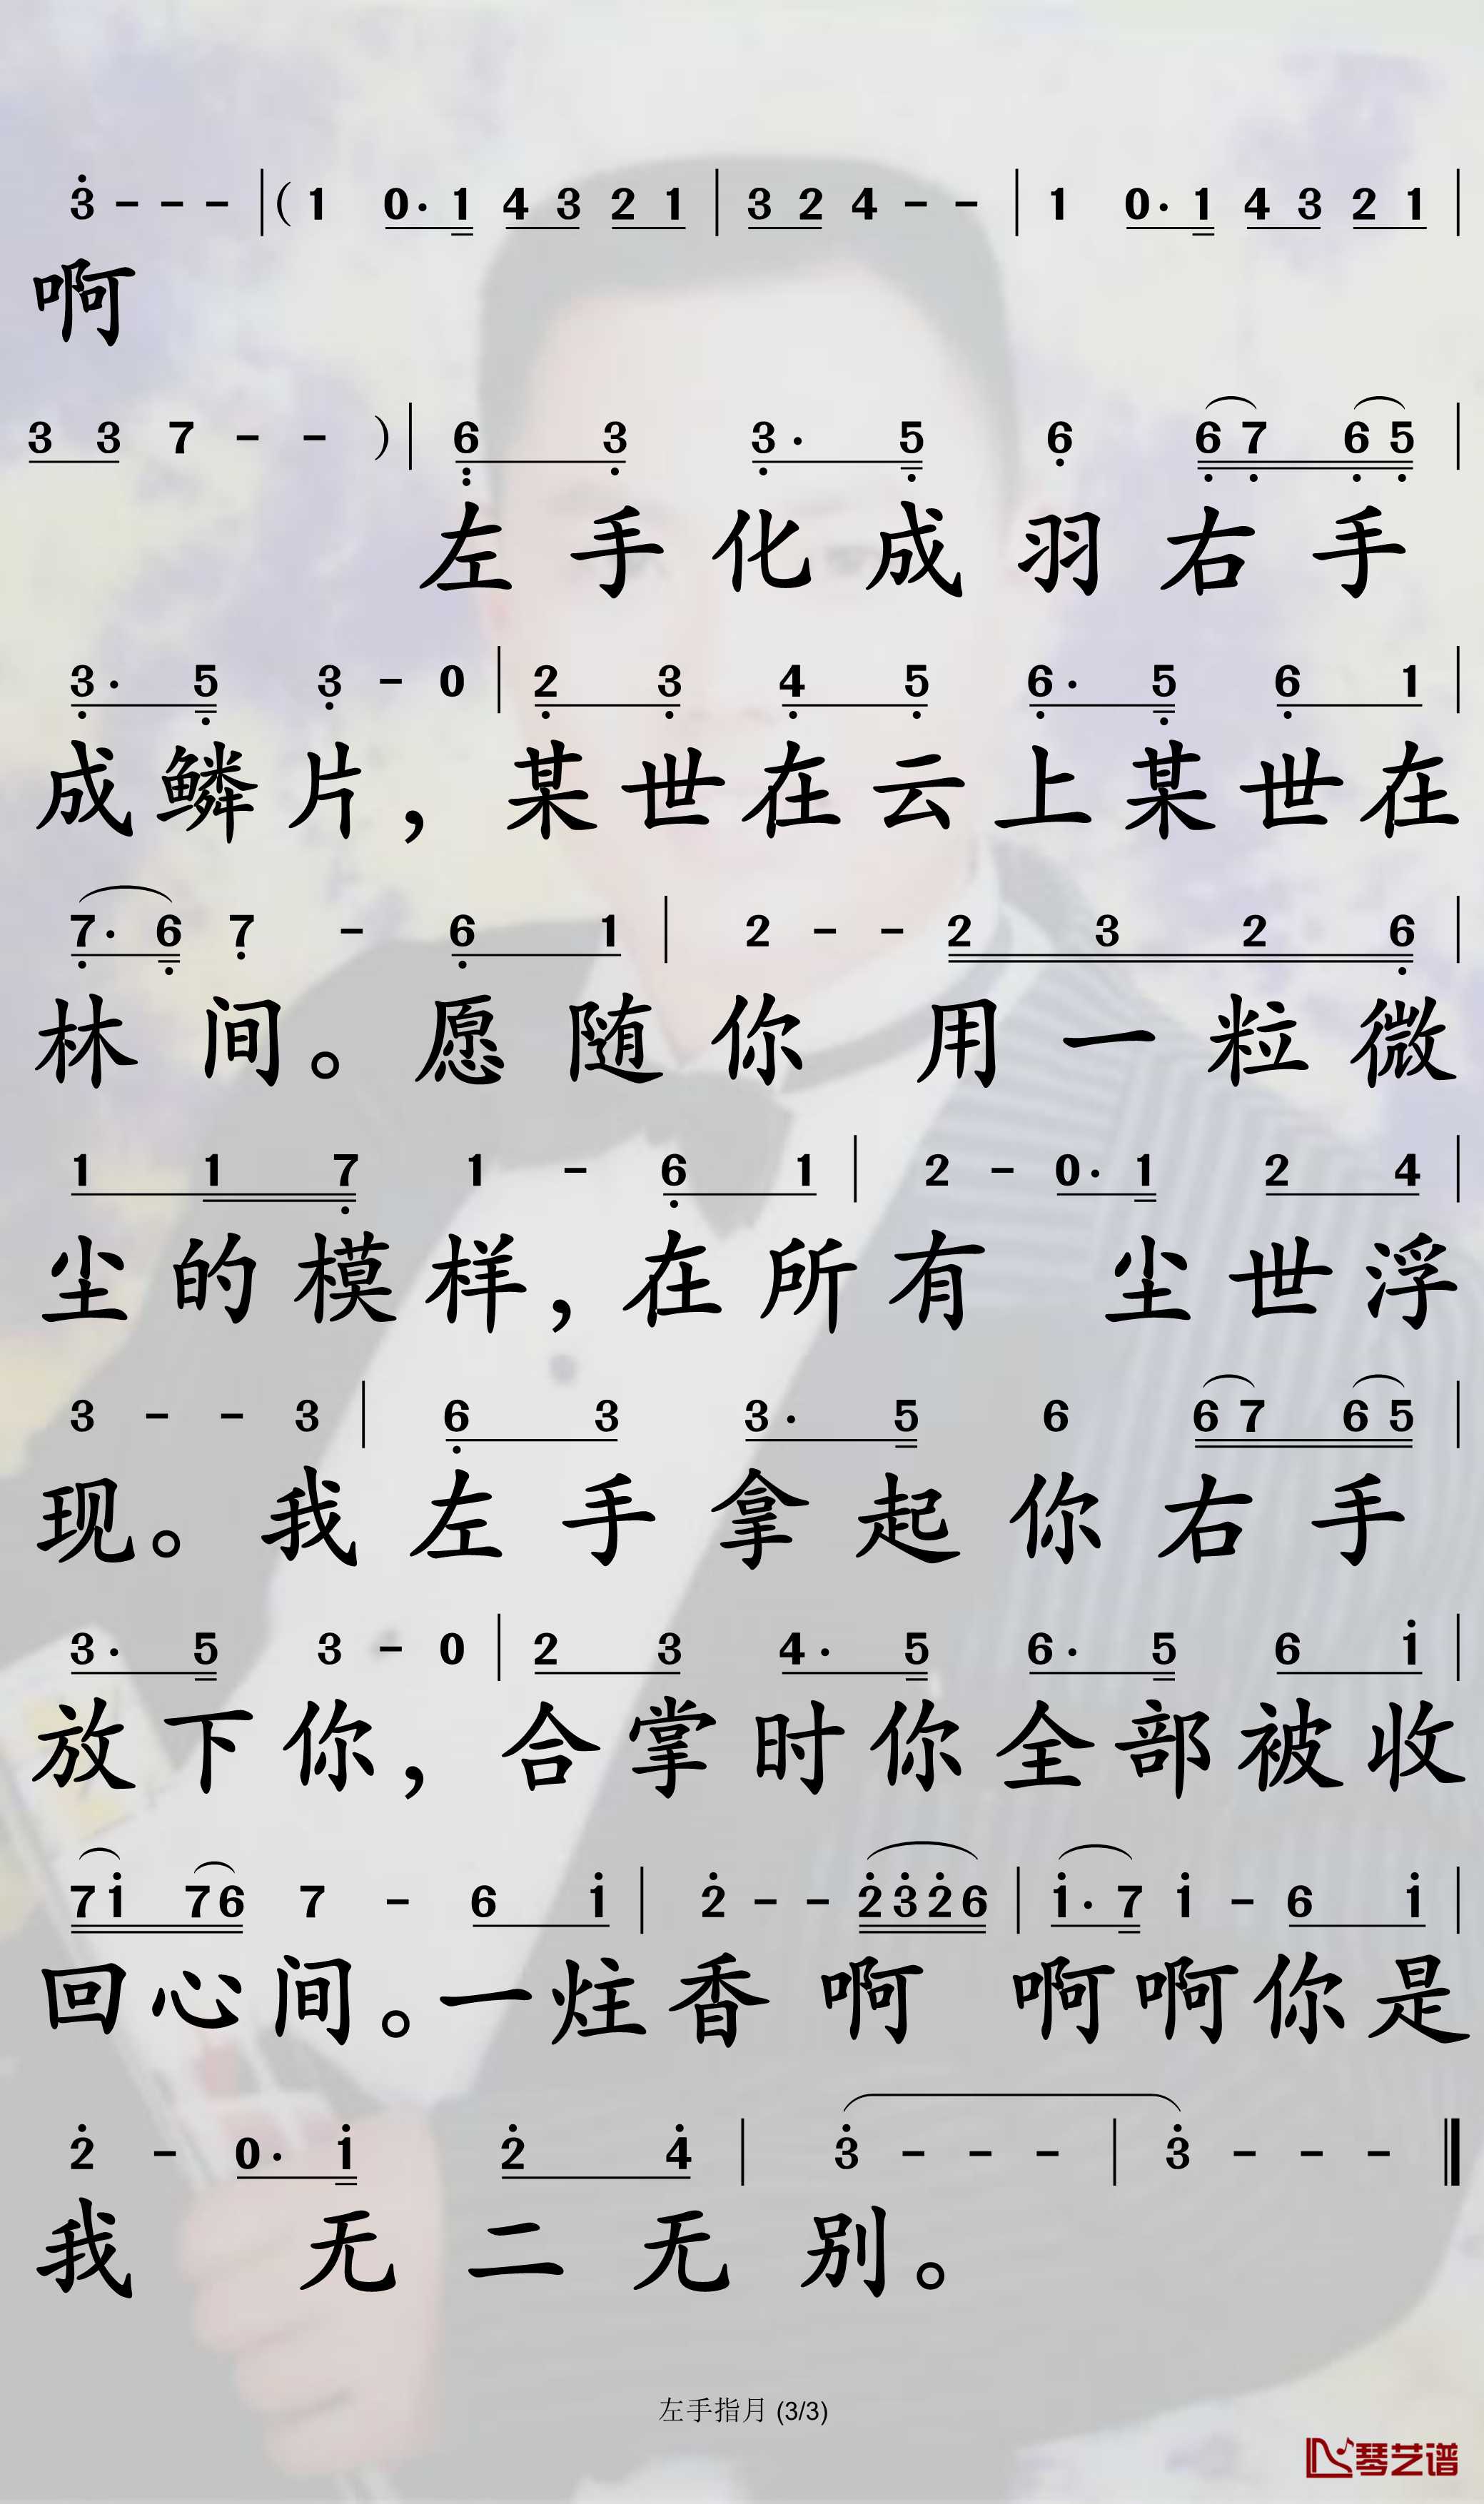 3̇ - - - | ( 1 0. 1 4 3 2 1 | 3 2 4 - - | 1 0. 1 4 3 2 1 |
啊
3 3 7 - - ) | 6 3 3. 5 6 6 7 6 5 |
左手化成羽右手
3. 5 3 - 0 | 2 3 4 5 6. 5 6 1 |
成鳞片，某世在云上某世在
7. 6 7 - 6 1 | 2 - - 2 3 2 6 |
林间。愿随你 用一粒微
1 1 7 1 - 6 1 | 2 - 0. 1 2 4 |
尘的模样，在所有 尘世浮
3 - - 3 | 6 3 3. 5 6 6 7 6 5 |
现。我左手拿起你右手
3. 5 3 - 0 | 2 3 4. 5 6. 5 6 1̇ |
放下你，合掌时你全部被收
7 1̇ 7 6 7 - 6 1̇ | 2̇ - - 2̇ 3̇ 2̇ 6 | 1̇. 7 1̇ - 6 1̇ |
回心间。一炷香啊 啊啊你是
2̇ - 0. 1̇ 2̇ 4̇ | 3̇ - - - | 3̇ - - - ‖
我 无二无别。
左手指月 (3/3)
琴艺谱